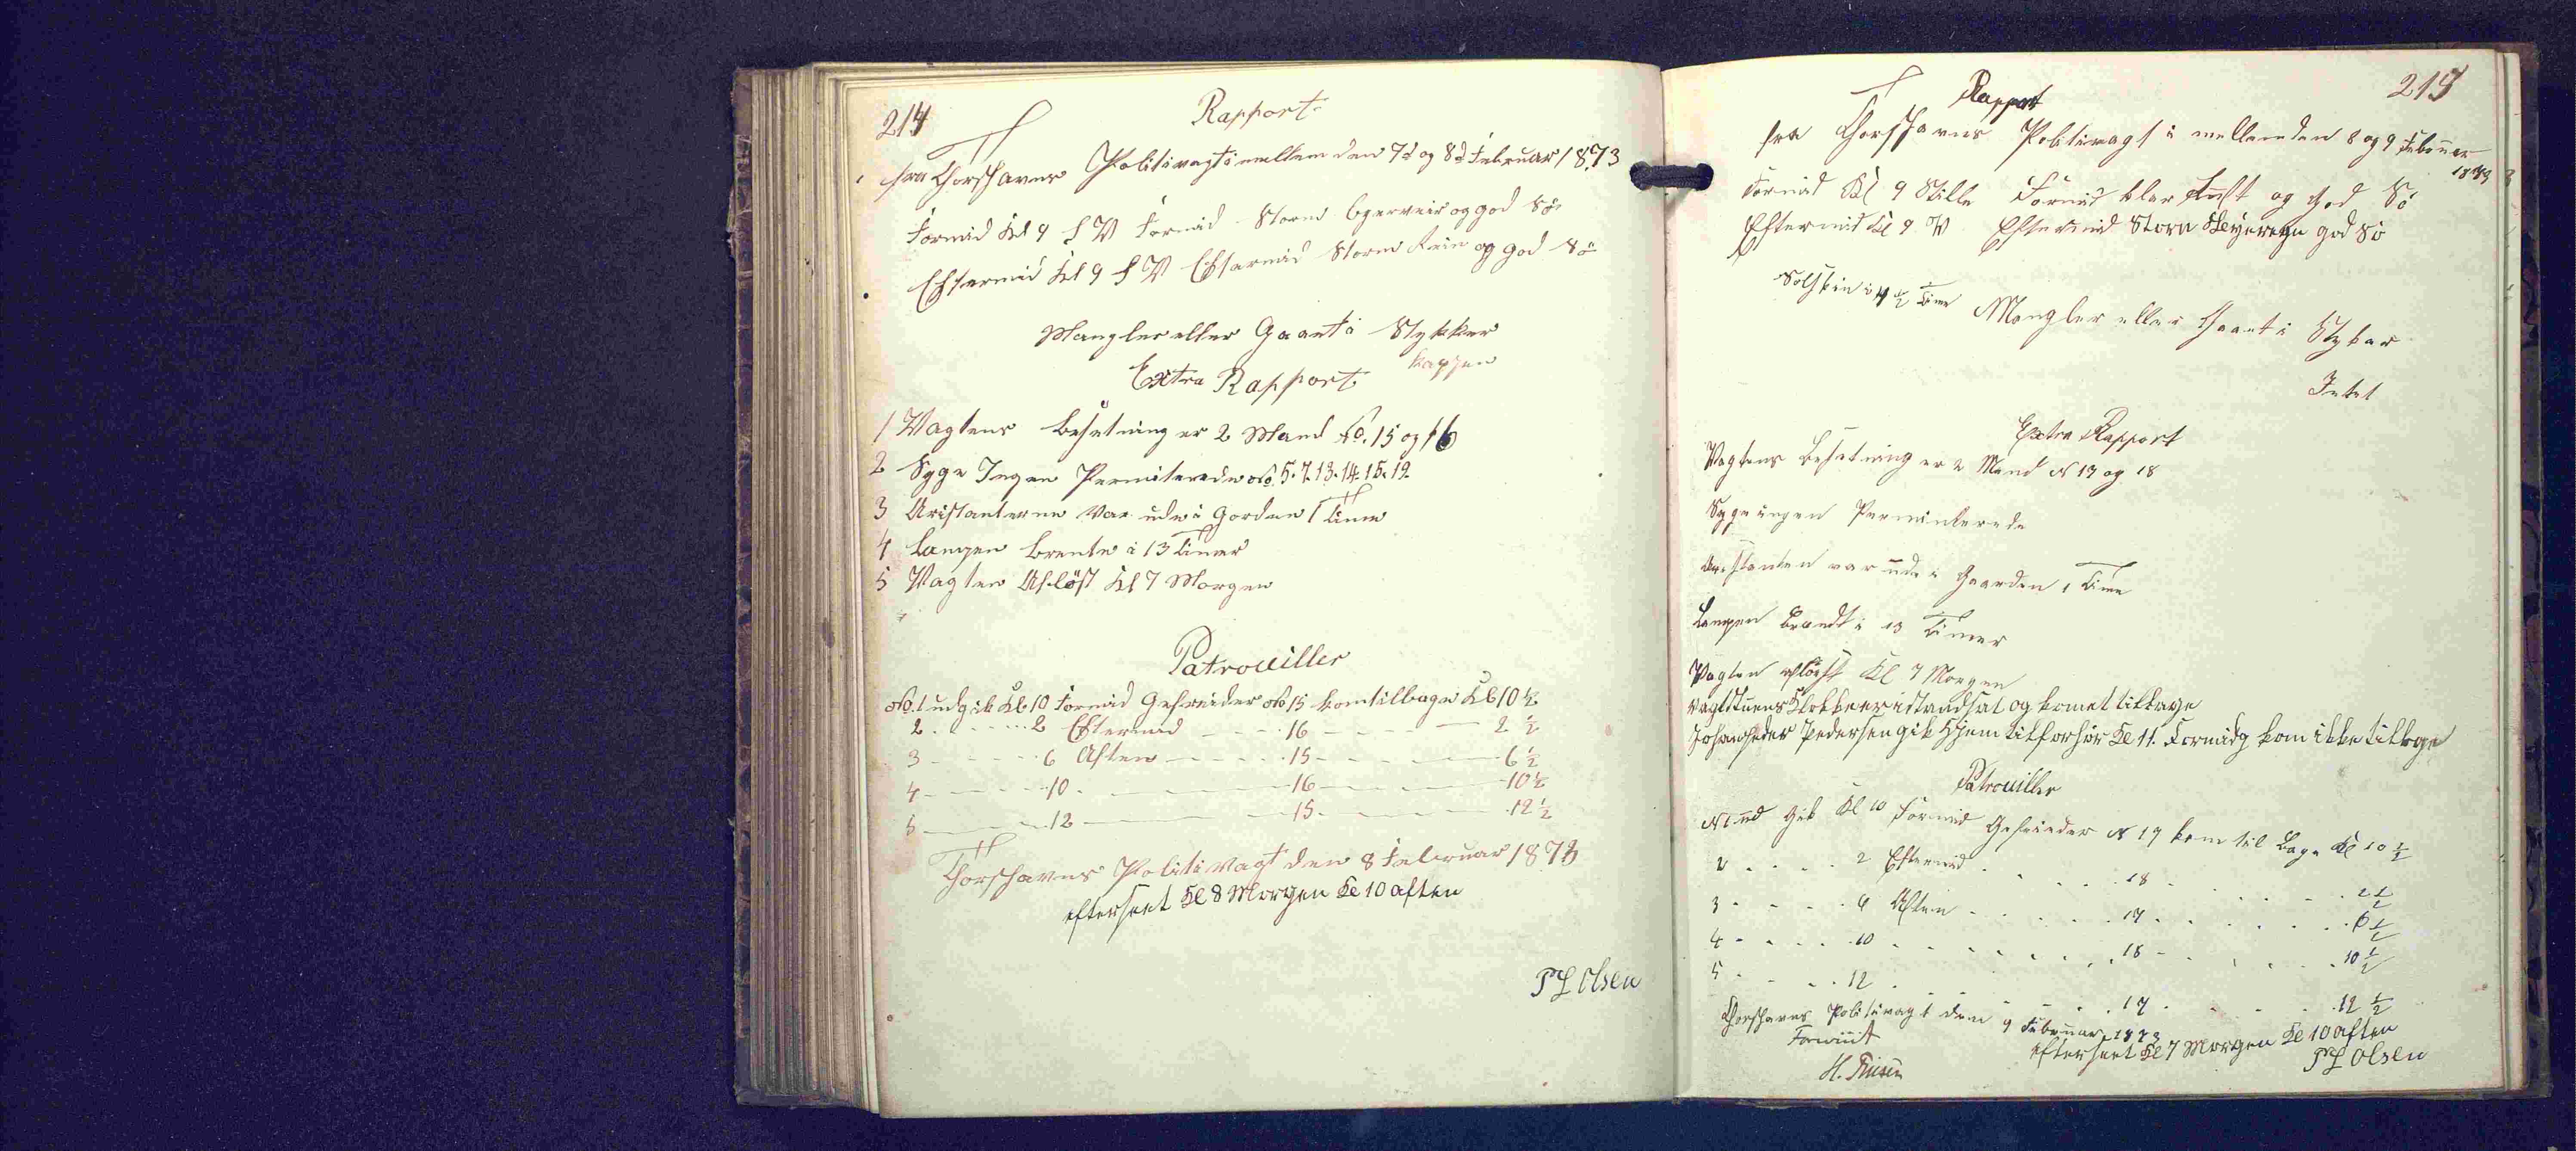 214
Rapport
fra Thorshavns Politivagt i mellem den 7d og 8d Februar 1873
Formid Kl 9 S V Formid Storm Bgerveir og god Sö
Eftermid Kl 9 S V Eftermid Storm Rein og god Sö
Mangler eller Gaaet i Stykker
kappen
Extra Rapport
1 Vagtens Besetning er 2 Mand No. 15 og 16
2 Syge Ingen Permiterede No. 5. 7. 13. 14. 15. 19.
3 Aristanterne var ude i Gorden 1 Time
4 Lampen brente i 13 Timer
5 Vagten Aflöst Kl 7 Morgen
Patrouiller
No. 1 udgik Kl 10 Formid Gefreider No 15 kom tilbage Kl 10 ½
2 2 Eftermid 16 2 ½
3 6 Aften 15 6 ½
4 10 16 10 ½
5 12 15 12 ½
Thorshavns Politivagt den 8 Februar 1873
efterseet Kl 8 Morgen Kl 10 aften
P L Olsen
215
Rapport
fra Thorshavns Politivagt i mellem den 8 og 9 Februar
1873
Formid Kl 9 Stille Formid klar Luft og God Sö
Eftermid Kl 9 V Eftermid Storm god Sö
Solskin i 4 ½ Time
Mangler eller Gaaet i Stykker
Intet
Extra Rapport
Vagtens Besetning er 2 Mand N 17 og 18
Syge ingen Permiterede
Arestanten var ude i Gaarden 1 Time
Lampen Brendt i 13 Timer
Vagten aflöst Kl 7 Morgen
Vagtstuens Klokke er istandsat og komet tilbage
Pedersen gik Hjem til forhör Kl 11. Formidg kom ikke tilbage
Patrouiller
N 1 ud Gik Kl 10 Formid Gefreider N 17 kom til Bage Kl 10 ½
2 2 Eftermid 18 2 ½
3 6 Aften 17 6 ½
4 10 18 10 ½
5 12 17 12 ½
Thorshavns Politivagt den 9 Februar 1873
efterseet Kl 7 Morgen Kl 10 aften
P L Olsen